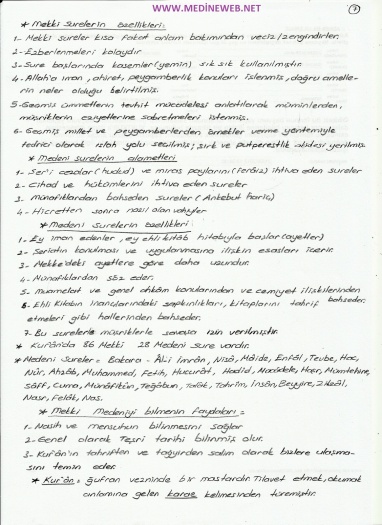 www.MEDINEWEB.NET
7
* Mekki Surelerin özellikleri:
1- Mekki sureler kısa fakat anlam bakımından veciz/zengindirler.
2- Ezberlenmeleri kolaydır
3- Sure başlarında kasemler(yemin) sık sık kullanılmıştır.
4- Allah'a iman, ahiret, peygamberlik konuları işlenmiş, doğru amelle-
rin neler olduğu belirtilmiş.
5- Geçmiş ümmetlerin tevhit mücadelesi anlatılarak müminlerden,
müşriklerin eziyetlerine sabretmeleri istenmiş.
6- Geçmiş millet ve peygamberlerden örnekler verme yöntemiyle
tedrici olarak ıslah yolu seçilmiş; şirk ve putperestlik akidesi yerilmiş.
* Medeni surelerin alametleri
1- Şer'i cezalar (hudud) ve miras paylarını (feraiz) ihtiva eden sureler
2- Cihad ve hükümlerini ihtiva eden sureler
3- Münafıklardan bahseden sureler (Ankebut hariç)
4- Hicretten sonra nazil olan vahiyler
* Medeni surelerin özellikleri
1- Ey iman edenler, ey ehli kitâb hitabıyla başlar (ayetler)
2- Şeriatın konulması ve uygulanmasına ilişkin esasları içerir.
3- Mekke'deki ayetlere göre daha uzundur.
4- Münafıklardan söz eder.
5- Muamelat ve genel ahkâm konularından ve cemiyet ilişkilerinden
bahseder.
6- Ehli Kitabın inançlarındaki sapkınlıkları, kitaplarını tahrif
etmeleri gibi hallerinden bahseder.
7- Bu surelerle müşriklerle savaşa izin verilmiştir.
* Kur'ân'da 86 Mekki 28 Medeni Sure vardır.
* Medeni Sureler = Bakara - Âl-i İmrân, Nisâ, Mâide, Enfâl, Tevbe, Hac,
Nûr, Ahzâb, Muhammed, Fetih, Hucurât, Hadid, Mücâdele, Haşr, Mümtehine,
Sâff, Cuma, Münâfikûn, Teğâbun, Talâk, Tahrîm, İnsân, Beyyine, Zilzâl,
Nasr, Felâk, Nas.
* Mekki Medeniyi bilmenin Faydaları =
1- Nasih ve mensuhun bilinmesini sağlar
2- Genel olarak Teşri tarihi bilinmiş olur.
3- Kur'ân'ın tahriften ve tağyirden salim olarak bizlere ulaşma-
sını temin eder.
* Kur'ân = ğufran vezninde bir mastardır. Tilavet etmek, okumak
anlamına gelen karae kelimesinden türemiştir.